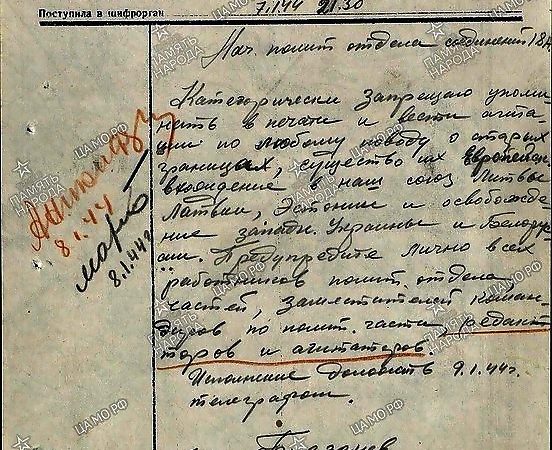 Поступила в шифрорган 7.1.44 21.30
Нач. полит отдела соединений 18А
Категорически запрещаю упоми
нать в печати и вести агита
ции по любому поводу о старых
границах, существо их
вхождение в наш союз Литвы
Латвии, Эстонии и освобожде
ние западн. Украины и Белорус
сии. Предупредите лично всех
работников полит. отдела,
частей, заместителей коман-
диров по полит. части редак
торов и агитаторов.
Исполнение доложить 9.1.44г.
телеграфом.
8.1.44
8.1.44г
ПАМЯТЬ НАРОДА
ЦАМО.РФ